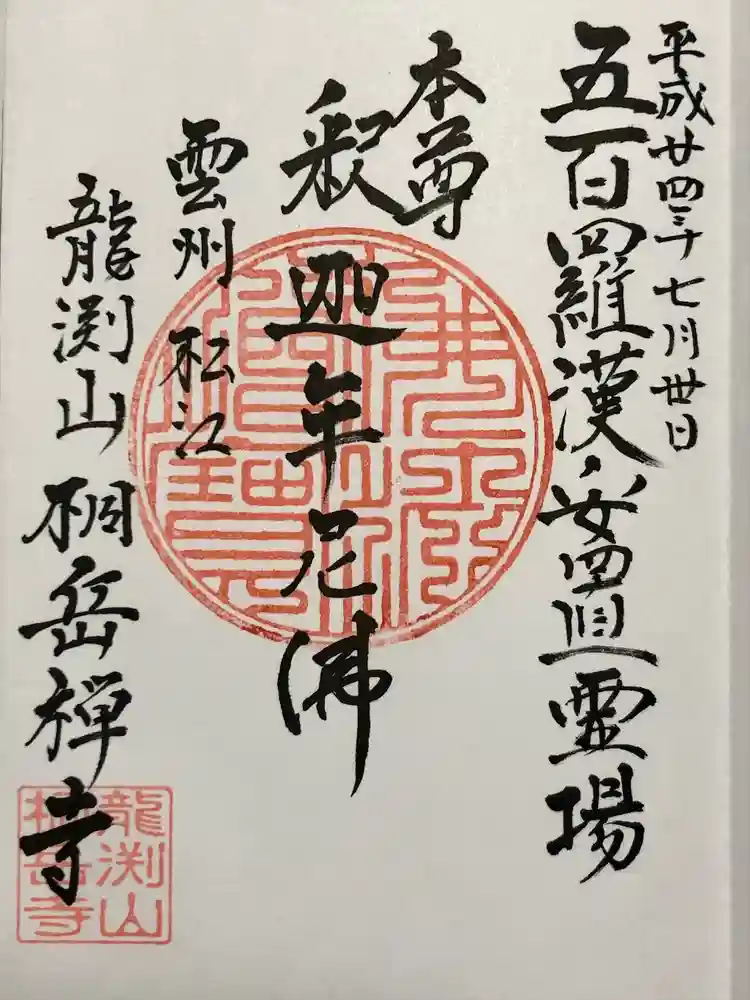 平成廿四年七月卅日
五百羅漢安置霊場
本尊
釈迦牟尼佛
雲州 松江
龍渊山 桐岳禅寺
龍渊山
桐岳寺